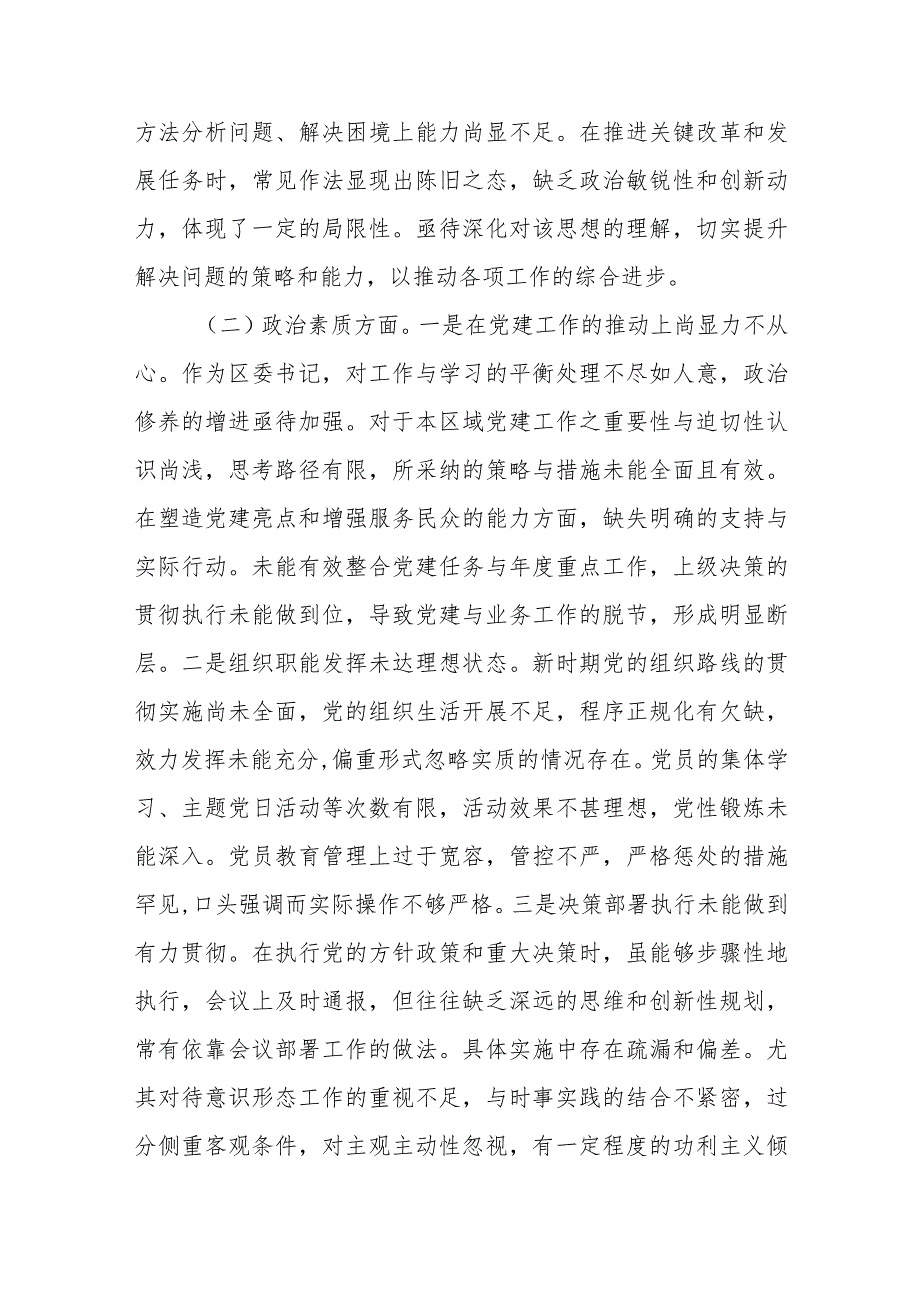 方法分析问题、解决困境上能力尚显不足。在推进关键改革和发
展任务时，常见作法显现出陈旧之态，缺乏政治敏锐性和创新动
力，体现了一定的局限性。亟待深化对该思想的理解，切实提升
解决问题的策略和能力，以推动各项工作的综合进步。
（二）政治素质方面。一是在党建工作的推动上尚显力不从
心。作为区委书记，对工作与学习的平衡处理不尽如人意，政治
修养的增进亟待加强。对于本区域党建工作之重要性与迫切性认
识尚浅，思考路径有限，所采纳的策略与措施未能全面且有效。
在塑造党建亮点和增强服务民众的能力方面，缺失明确的支持与
实际行动。未能有效整合党建任务与年度重点工作，上级决策的
贯彻执行未能做到位，导致党建与业务工作的脱节，形成明显断
层。二是组织职能发挥未达理想状态。新时期党的组织路线的贯
彻实施尚未全面，党的组织生活开展不足，程序正规化有欠缺，
效力发挥未能充分,偏重形式忽略实质的情况存在。党员的集体学
习、主题党日活动等次数有限，活动效果不甚理想，党性锻炼未
能深入。党员教育管理上过于宽容，管控不严，严格惩处的措施
罕见,口头强调而实际操作不够严格。三是决策部署执行未能做到
有力贯彻。在执行党的方针政策和重大决策时，虽能够步骤性地
执行，会议上及时通报，但往往缺乏深远的思维和创新性规划，
常有依靠会议部署工作的做法。具体实施中存在疏漏和偏差。尤
其对待意识形态工作的重视不足，与时事实践的结合不紧密，过
分侧重客观条件，对主观主动性忽视，有一定程度的功利主义倾